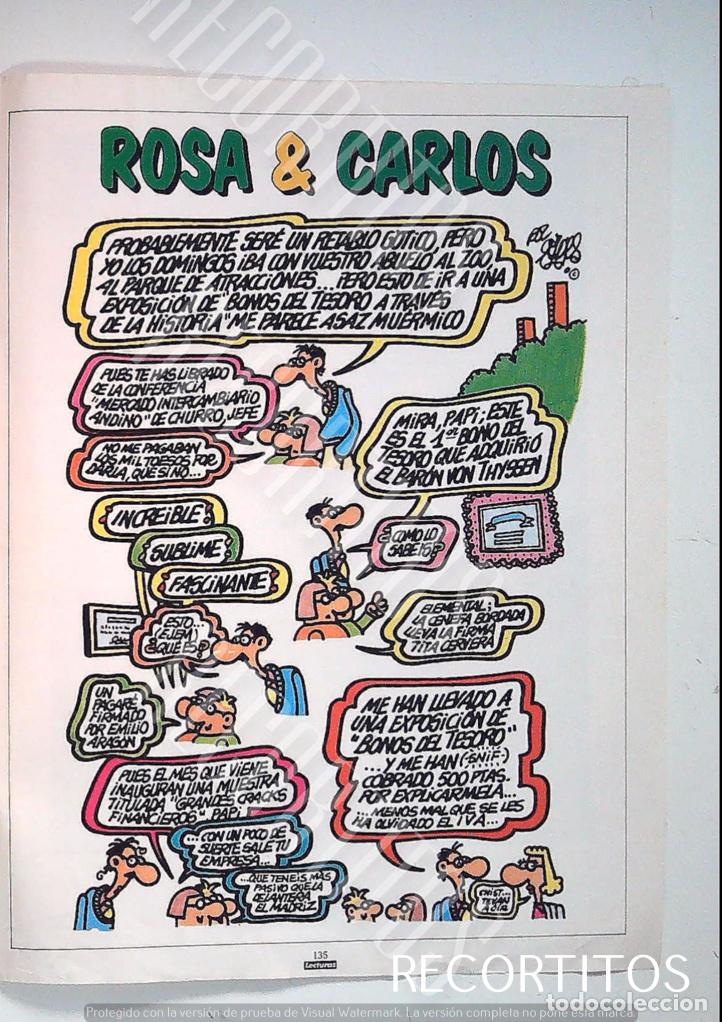 ROSA & CARLOS
POR FORGES
©
PROBABLEMENTE SERÉ UN RETABLO GÓTICO, PERO
YO LOS DOMINGOS IBA CON VUESTRO ABUELO AL ZOO,
AL PARQUE DE ATRACCIONES... PERO ESTO DE IR A UNA
EXPOSICIÓN DE "BONOS DEL TESORO A TRAVÉS
DE LA HISTORIA" ME PARECE ASAZ MUÉRMICO
PUES TE HAS LIBRADO
DE LA CONFERENCIA
"MERCADO INTERCAMBIARIO
ANDINO" DE CHURRO, JEFE
NO ME PAGABAN
LOS MIL TOESOS POR
DARLA, QUE SI NO...
MIRA, PAPI; ESTE
ES EL 1er BONO DEL
TESORO QUE ADQUIRIÓ
EL BARÓN VON THYSSEN
¿CÓMO LO
SABÉIS?
ELEMENTAL;
LA CENEFA BORDADA
LLEVA LA FIRMA
TITA CERVERA
INCREÍBLE
SUBLIME
FASCINANTE
ESTO...
EJEM
¿QUÉ ES?
UN
PAGARÉ
FIRMADO
POR EMILIO
ARAGÓN
PUES EL MES QUE VIENE
INAUGURAN UNA MUESTRA
TITULADA "GRANDES CRACKS
FINANCIEROS", PAPI
...CON UN POCO DE
SUERTE SALE TU
EMPRESA...
...QUE TENEIS MÁS
PASIVO QUE LA
DELANTERA
EL MADRIZ
ME HAN LLEVADO A
UNA EXPOSICIÓN DE
"BONOS DEL TESORO"
...Y ME HAN (¡SNIF!)
COBRADO 500 PTAS.
POR EXPLICÁRMELA...
...MENOS MAL QUE SE LES
HA OLVIDADO EL I.V.A...
CHIST...
TE VAN
A OIR
135
Lecturas
RECORTITOS
todocoleccion
Protegido con la versión de prueba de Visual Watermark. La versión completa no pone esta marca.